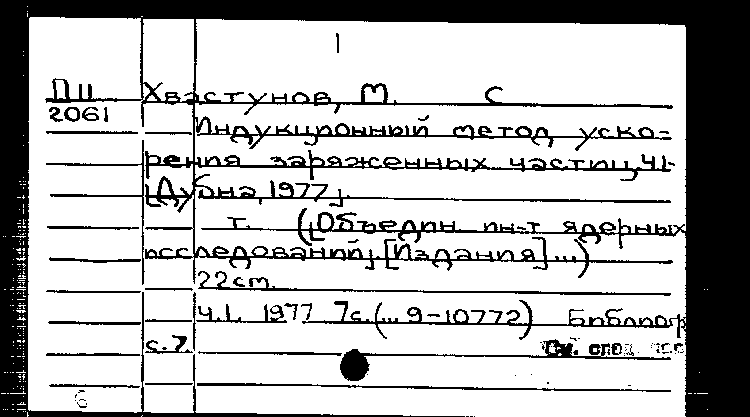 1
П II Хвастунов, М. С
2061
Индукционный метод уско-
рения заряженных частиц, Ч.1-
[Дубна, 1977].
т. ([Объедин ин-т ядерных
исследований]. [Издания]...)
22см.
Ч.1. 1977 7с. (... 9-10772) Библиогр
с.7. См. след.
6